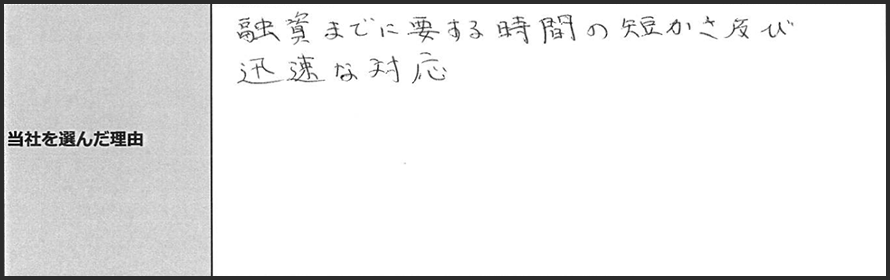 当社を選んだ理由
融資までに要する時間の短かさ及び
迅速な対応